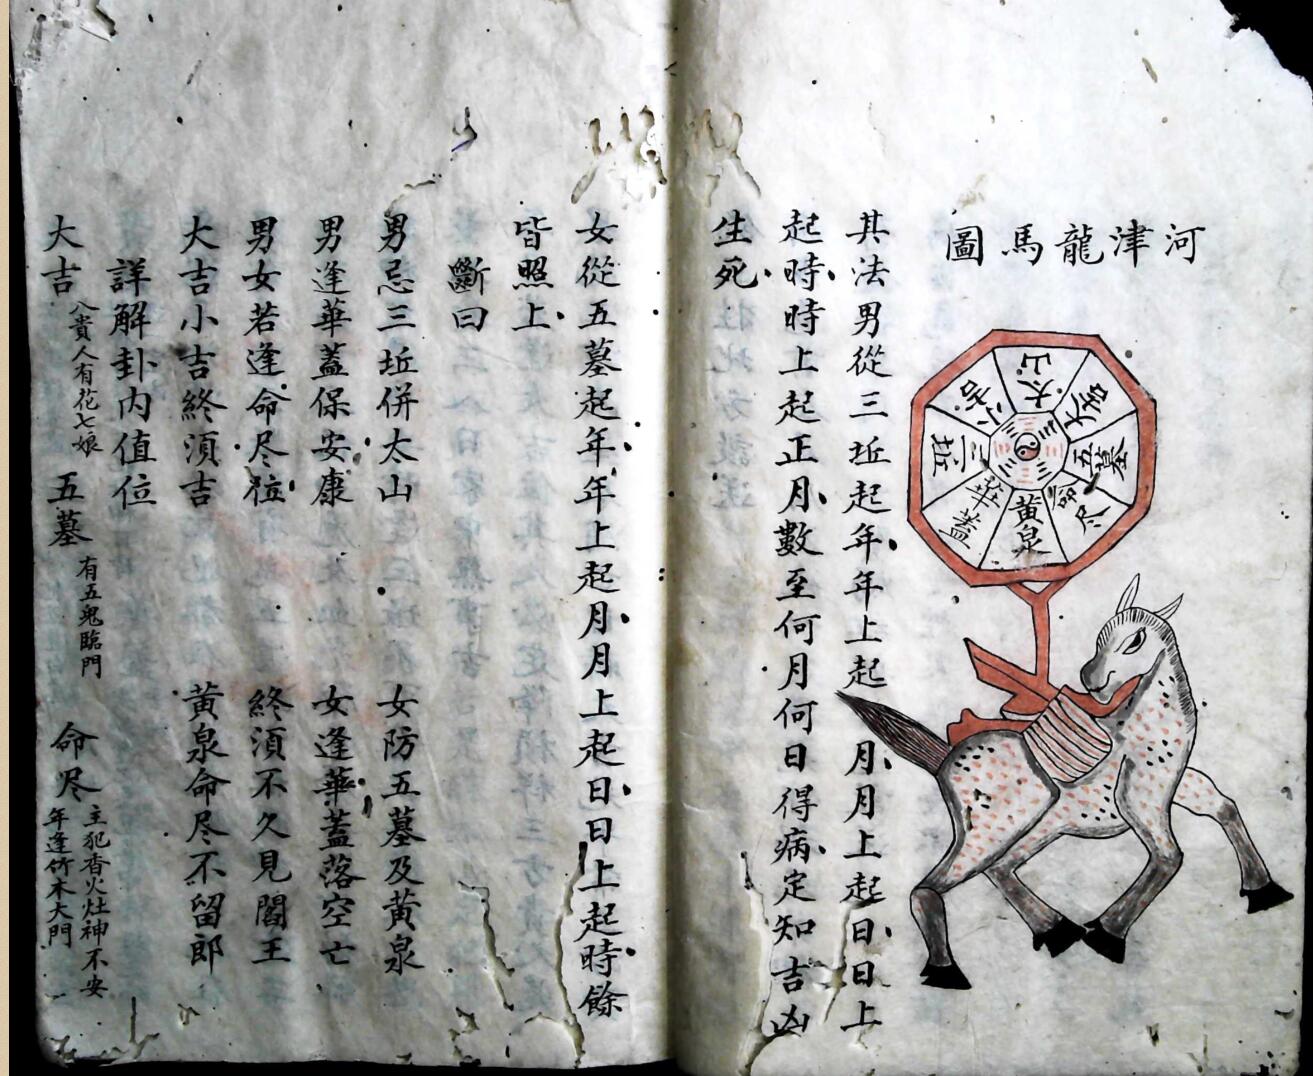 河津龍馬圖
太山
大吉
五墓
命尽
黃泉
華蓋
三坵
小吉
其法男從三坵起年年上起月月上起日日上
起時時上起正月數至何月何日得病定知吉凶
生死
女從五墓起年年上起月月上起日日上起時餘
皆照上
斷曰
男忌三坵併太山 女防五墓及黃泉
男逢華蓋保安康 女逢華蓋落空亡
男女若逢命尽位 終須不久見閻王
大吉小吉終須吉 黃泉命尽不留郎
詳解卦内值位
大吉 八貴人有花七娘 五墓 有五鬼臨門 命尽 主犯香火灶神不安
年逢竹木大門